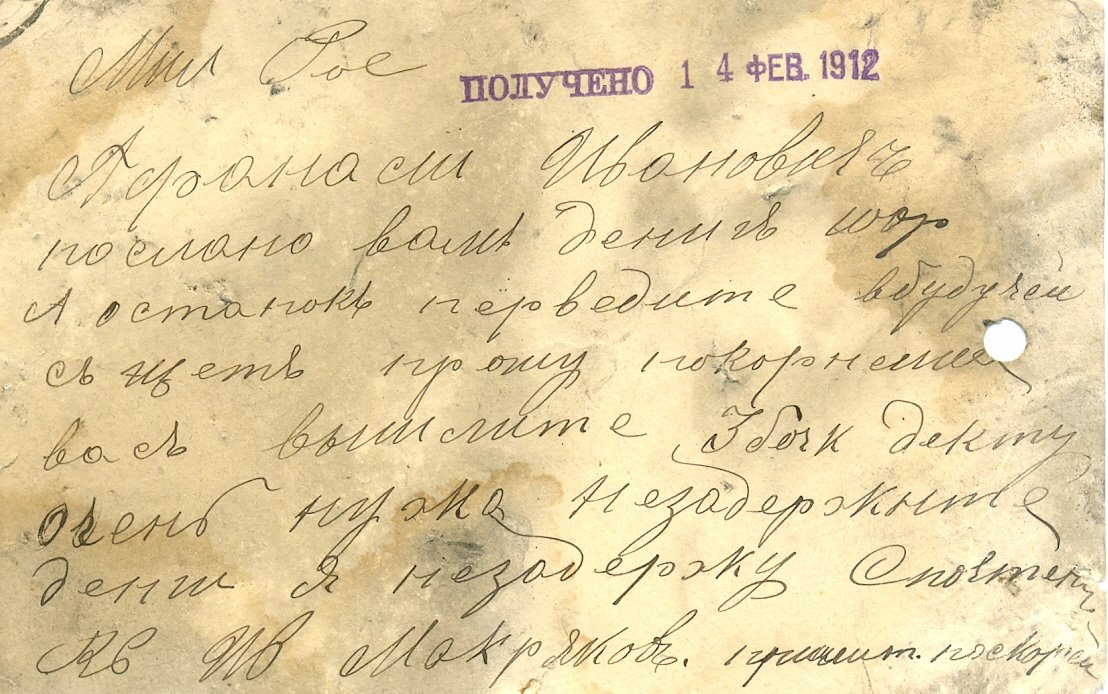 Мил Гос
ПОЛУЧЕНО 14 ФЕВ. 1912
Афанаси Ивановичъ
послано вамъ денигъ
А останокъ перведите вбудучем
съ щетъ прошу покорнеише
васъ вышлите 3 бочк дектю
очень нужна незадержите
Я незадержу С почтени
Кв ИВ Макряковъ. пришлит. поскорей